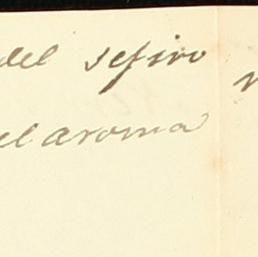 del sefiro
el aroma